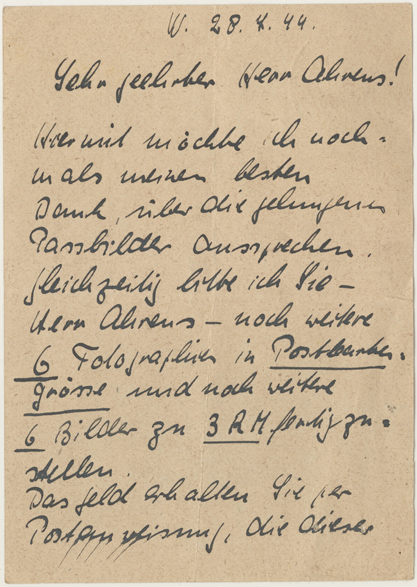 W. 28.4.44.
Sehr geehrter Herr Ahrens!
Hiermit möchte ich noch-
mals meinen besten
Dank, über die gelungenen
Passbilder aussprechen.
Gleichzeitig bitte ich Sie –
Herr Ahrens – noch weitere
6 Fotographien in Postkarten-
grösse und noch weitere
6 Bilder zu 3 RM fertigzu-
stellen.
Das Geld erhalten Sie per
Postanweisung, die dieser